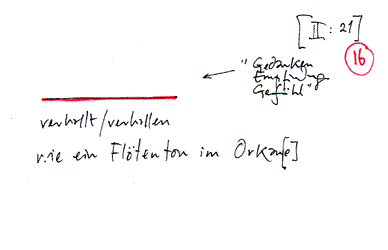 [II: 21]
16
"Gedanken
Empfindung
Gefühl"
verhallt/verhallen
wie ein Flötenton im Orkan[e]